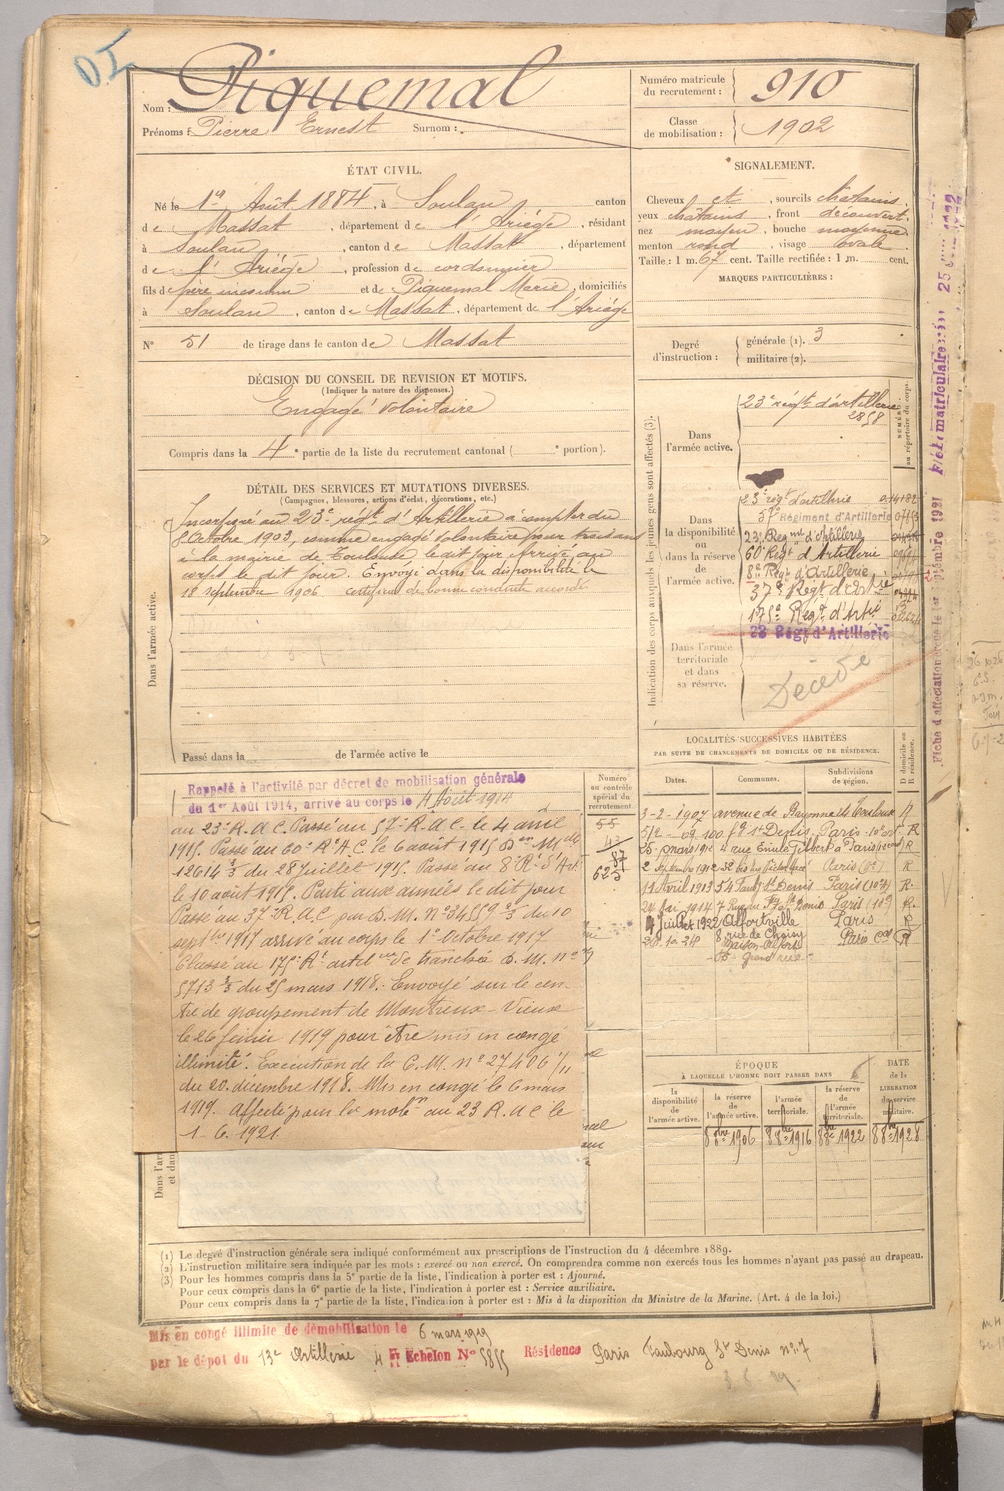 Nom : Piquemal
Prénoms : Pierre Ernest Surnom :
Numéro matricule du recrutement : 910
Classe de mobilisation : 1902
ÉTAT CIVIL.
Né le 1er Août 1884, à Soulan canton
de Massat, département de l'Ariège, résidant
à Soulan, canton de Massat, département
de l'Ariège, profession de cordonnier
fils de père inconnu et de Piquemal Marie, domiciliés
à Soulan, canton de Massat, département de l'Ariège
N° 51 de tirage dans le canton de Massat
SIGNALEMENT.
Cheveux et, sourcils châtains.
yeux châtains, front découvert,
nez moyen, bouche moyenne
menton rond, visage ovale
Taille : 1 m. 67 cent. Taille rectifiée : 1 m. cent.
MARQUES PARTICULIÈRES :
Degré d'instruction :
générale (1). 3
militaire (2).
DÉCISION DU CONSEIL DE REVISION ET MOTIFS.
(Indiquer la nature des dispenses.)
Engagé volontaire
Compris dans la 4e partie de la liste du recrutement cantonal ( e portion).
DÉTAIL DES SERVICES ET MUTATIONS DIVERSES.
(Campagnes, blessures, actions d'éclat, décorations, etc.)
Dans l'armée active.
Incorporé au 23e régt d'Artillerie à compter du
8 Octobre 1903, comme engagé volontaire pour trois ans
à la mairie de Toulouse le dit jour. Arrivé au
corps le dit jour. Envoyé dans la disponibilité le
18 septembre 1906 certificat de bonne conduite accordé
Passé dans la de l'armée active le
Indication des corps auxquels les jeunes gens sont affectés (3).
NUMÉRO au répertoire du corps.
Dans l'armée active.
23e régt d'artillerie
2858
Dans la disponibilité ou dans la réserve de l'armée active.
23e régt d'artillerie
57e Régiment d'Artillerie
23e Regnt d'Artillerie
60e Regt d'Artillerie
8e Regt d'Artillerie
37e Regt d'Artie
175e Regt d'Artie
23 Régt d'Artillerie
Dans l'armée territoriale et dans sa réserve.
Décédé
Rappelé à l'activité par décret de mobilisation générale
du 1er Août 1914, arrivé au corps le 4 Août 1914
au 23e R.A.C. Passé au 57e R.A.C. le 4 avril
1915. Passé au 60e R.A.C. le 6 août 1915 Don Mlle
12614 3/3 du 28 juillet 1915. Passé au 8e Rt d'Art.
le 10 août 1915. Parti aux armées le dit jour
Passé au 37e R.A.C. par D.M. n° 34559 2/3 du 10
septbre 1917 arrivé au corps le 1er Octobre 1917
Classé au 175e Rt artil de tranchée D.M. n°
5713 3/3 du 25 mars 1918. Envoyé sur le cen-
tre de groupement de Montreux-Vieux
le 26 février 1919 pour être mis en congé
illimité. Exécution de la C.M. n° 27406 1/11
du 20 décembre 1918. Mis en congé le 6 mars
1919. Affecté pour la mobon au 23 R.A.C. le
1-6-1921.
Numéro au contrôle spécial du recrutement.
55
LOCALITÉS SUCCESSIVES HABITÉES
PAR SUITE DE CHANGEMENTS DE DOMICILE OU DE RÉSIDENCE.
Dates. Communes. Subdivisions de région. D domicile ou R résidence.
3-2-1907 avenue de Bayonne Toulouse R
100 fg St Denis Paris 10e R
25 mars 1912 4 rue Emile Gilbert à Paris R
2 septembre 1912 Paris R
11 Avril 1913 54 Faubg St Denis Paris (10e) R
1914 7 Rue du Fbg St Denis Paris (10e) R
4 juillet 1922 Alfortville Paris R
8 rue de Choisy
Maison-Alfort Paris R
Grand rue
ÉPOQUE
À LAQUELLE L'HOMME DOIT PASSER DANS
la disponibilité de l'armée active.
la réserve de l'armée active.
l'armée territoriale.
la réserve de l'armée territoriale.
DATE de la LIBÉRATION du service militaire.
8 8bre 1906 8 8bre 1916 8 8bre 1922 8 8bre 1928
(1) Le degré d'instruction générale sera indiqué conformément aux prescriptions de l'instruction du 4 décembre 1889.
(2) L'instruction militaire sera indiquée par les mots : exercé ou non exercé. On comprendra comme non exercés tous les hommes n'ayant pas passé au drapeau.
(3) Pour les hommes compris dans la 5e partie de la liste, l'indication à porter est : Ajourné.
Pour ceux compris dans la 6e partie de la liste, l'indication à porter est : Service auxiliaire.
Pour ceux compris dans la 7e partie de la liste, l'indication à porter est : Mis à la disposition du Ministre de la Marine. (Art. 4 de la loi.)
Mis en congé illimité de démobilisation le 6 mars 1919
par le dépôt du 13e Artillerie 4 Echelon N° 5855 Résidence Paris Faubourg St Denis n° 7